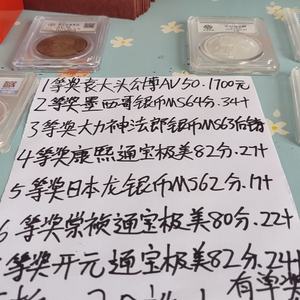 1等奖袁大头公博AV50.1700元
2等奖墨西哥银币MS64分.34+
3等奖大力神法郎银币MS63
4等奖康熙通宝极美82分.27+
5等奖日本龙银币MS62分.17+
6等奖崇祯通宝极美80分.22+
等奖开元通宝极美82分.24+
有单奖